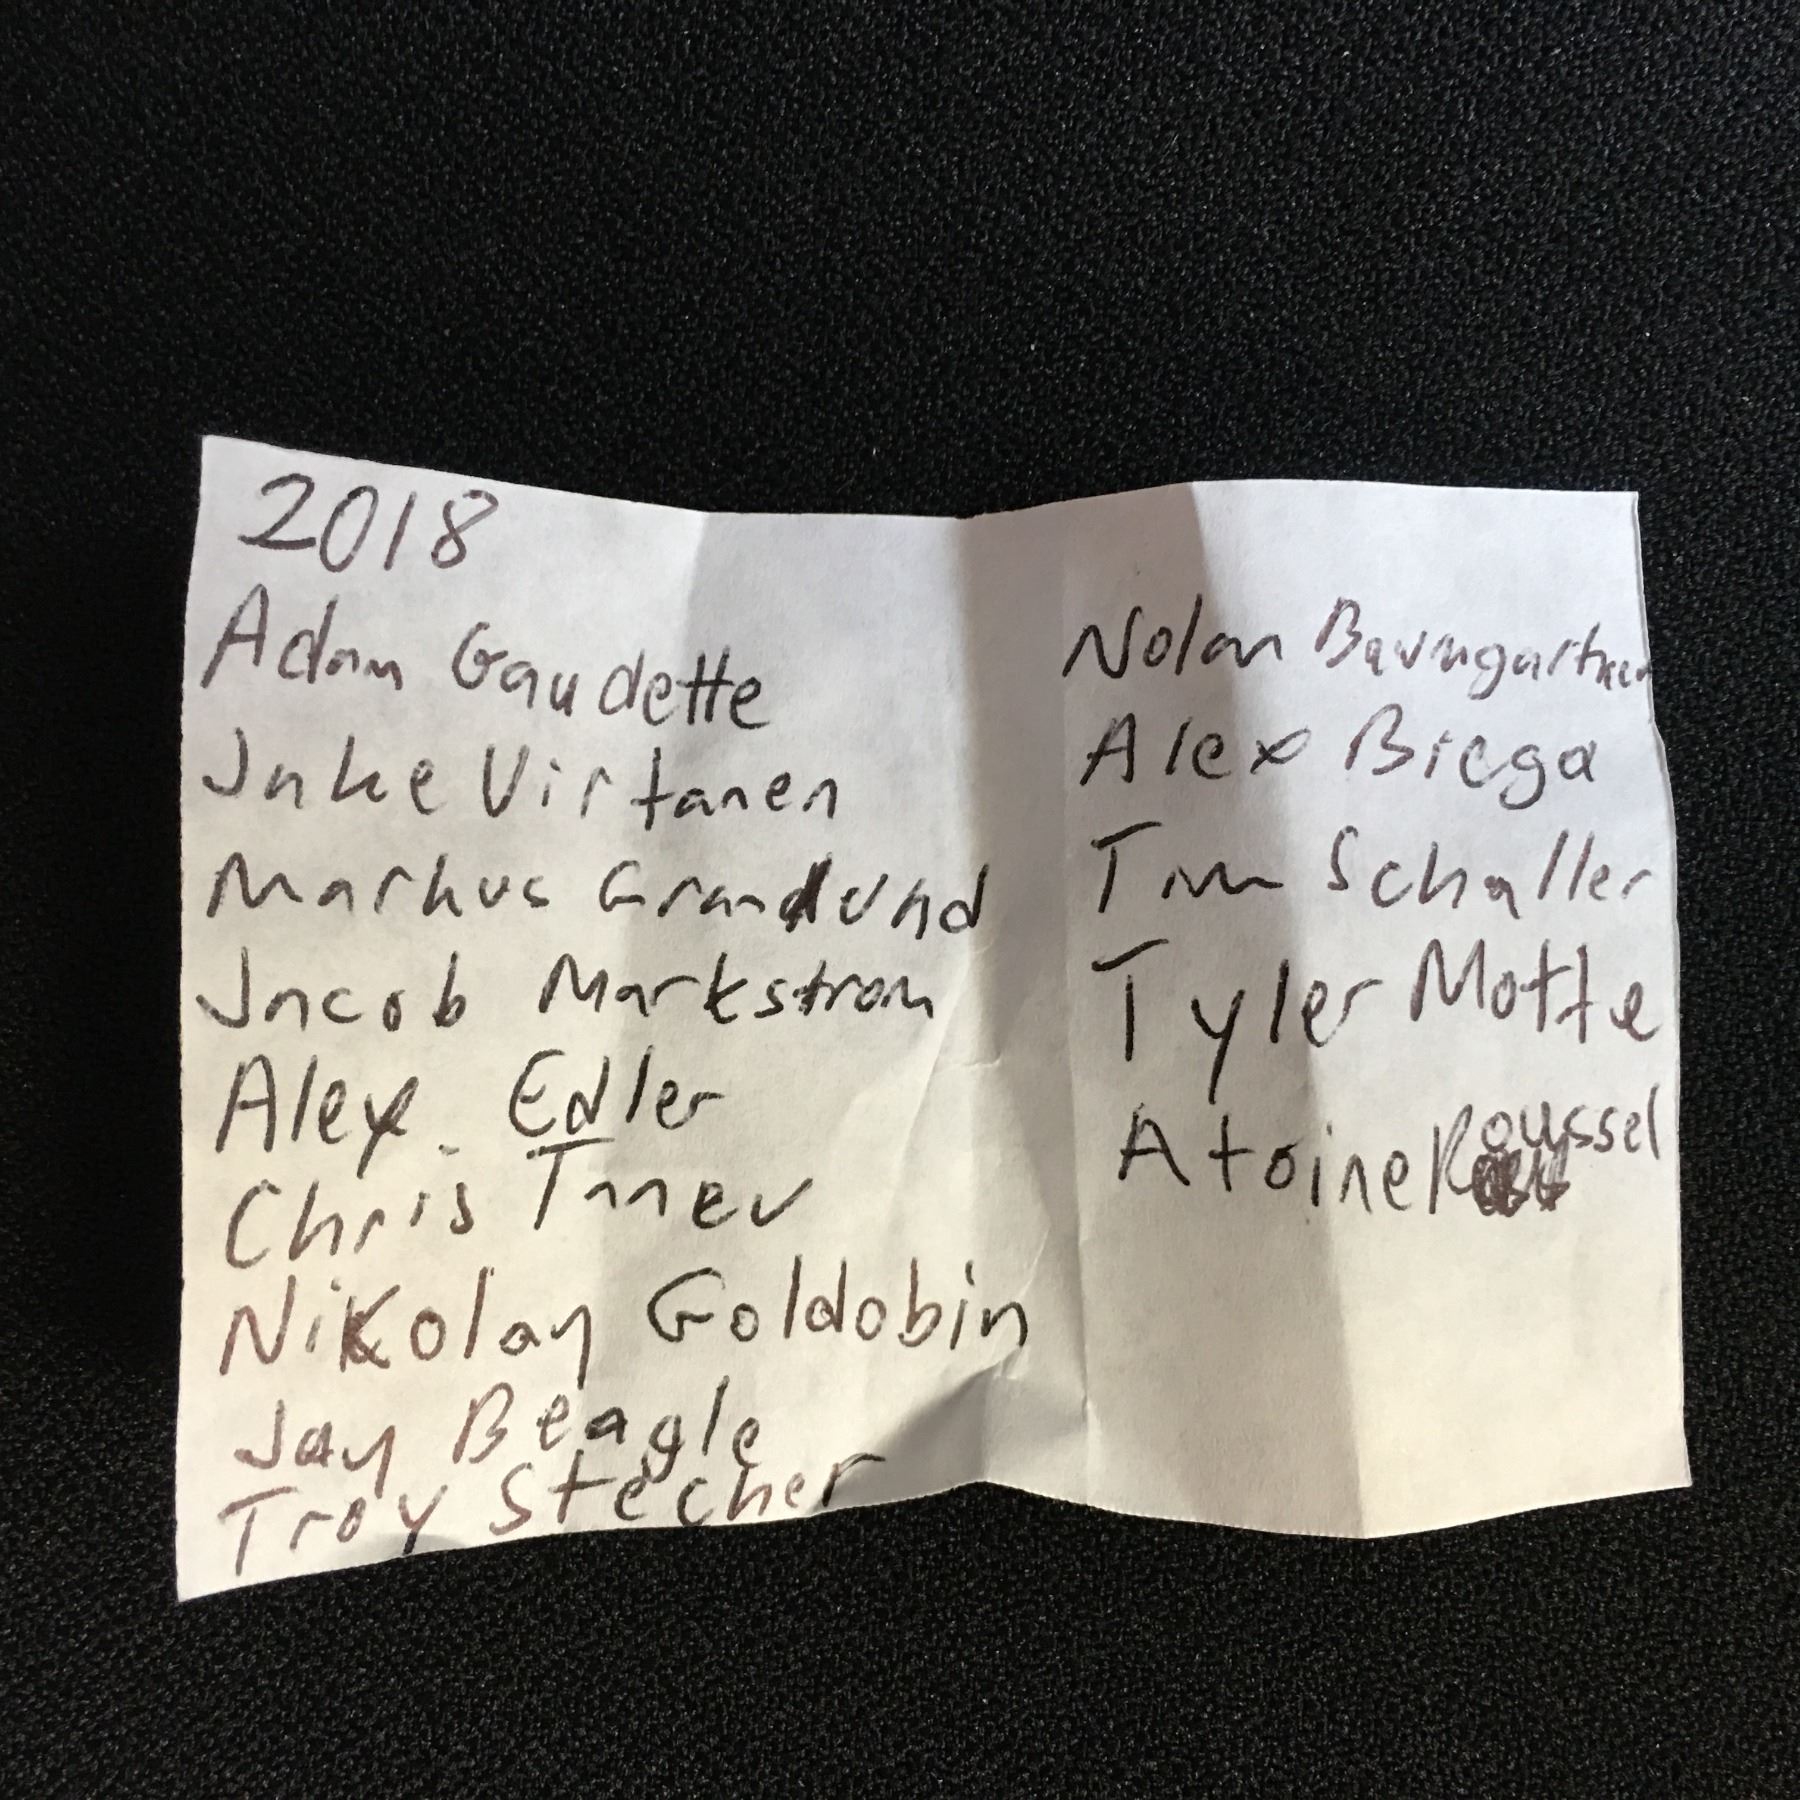 2018
Adam Gaudette
Jake Virtanen
Markus Granlund
Jacob Markstrom
Alex Edler
Chris Tanev
Nikolay Goldobin
Jay Beagle
Troy Stecher
Nolan Baumgartner
Alex Biega
Tim Schaller
Tyler Motte
Atoine Roussel